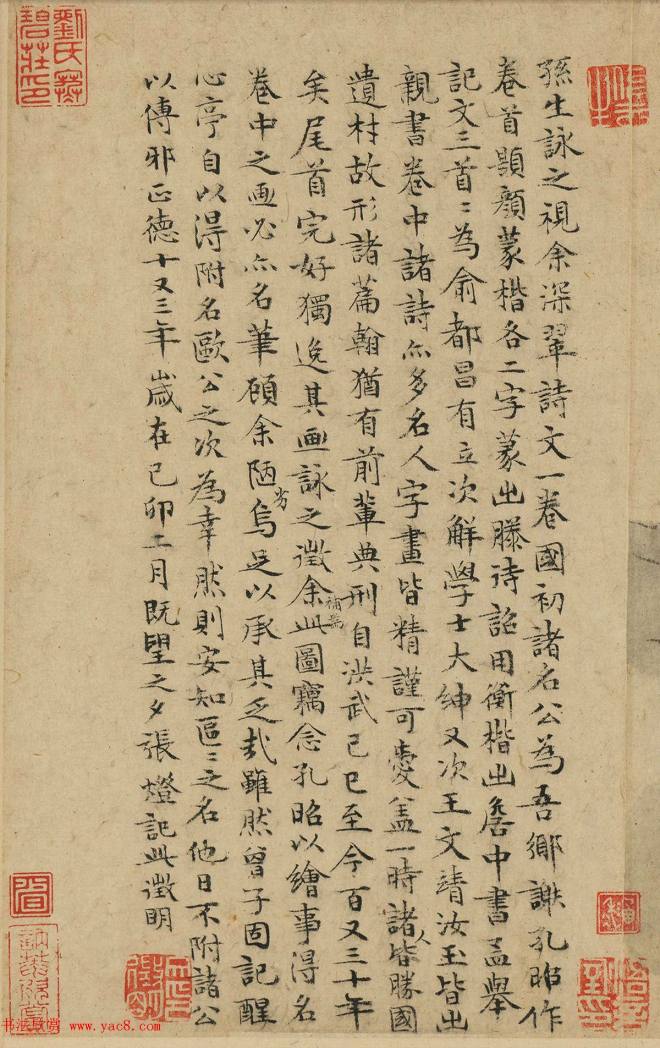 孫生詠之視余深翠詩文一卷國初諸名公為吾鄉謝孔昭作
卷首顆顏蒙楷各二字蒙出滕待詔用衡楷出詹中書孟舉
記文三首〻為俞都昌有立次解學士大紳又次王文靖汝玉皆出
親書卷中諸詩亦多名人字畫皆精謹可愛蓋一時諸人皆勝國
遺材故形諸篇翰猶有前輩典刑自洪武己巳至今百又三十年
矣尾首完好獨逸其画詠之徵余補為此圖竊念孔昭以繪事得名
卷中之画必亦名筆顧余陋劣烏足以承其乏哉雖然曾子固記醒
心亭自以得附名歐公之次為幸然則安知區〻之名他日不附諸公
以傳邪正德十又三年歲在己卯二月既望之夕張燈記此徵明
劉氏
碧莊
书法欣赏 www.yac8.com